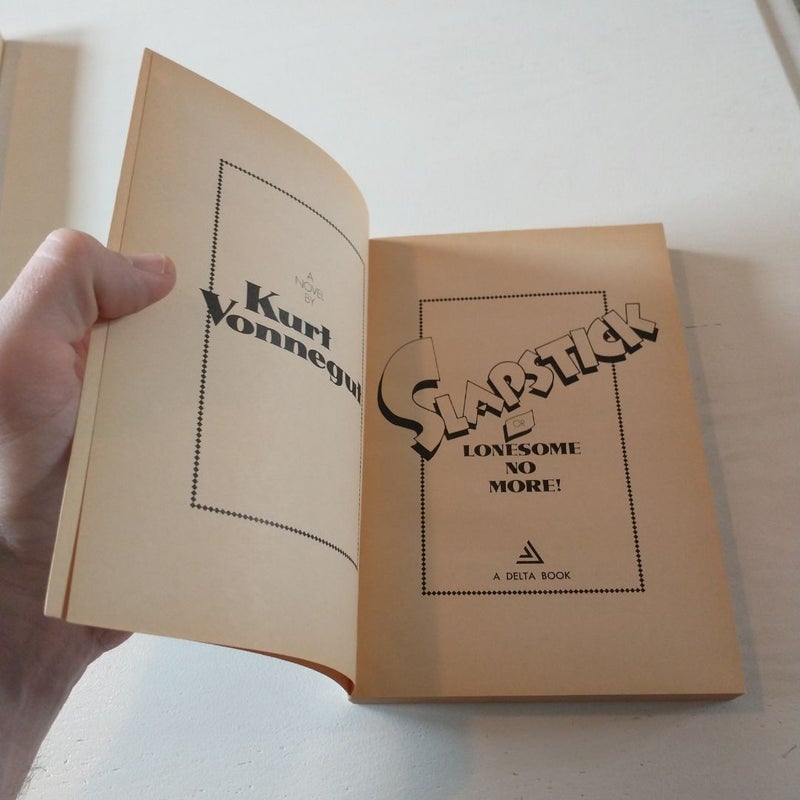 A
NOVEL
BY
Kurt
Vonnegut
SLAPSTICK
OR
LONESOME
NO
MORE!
A DELTA BOOK